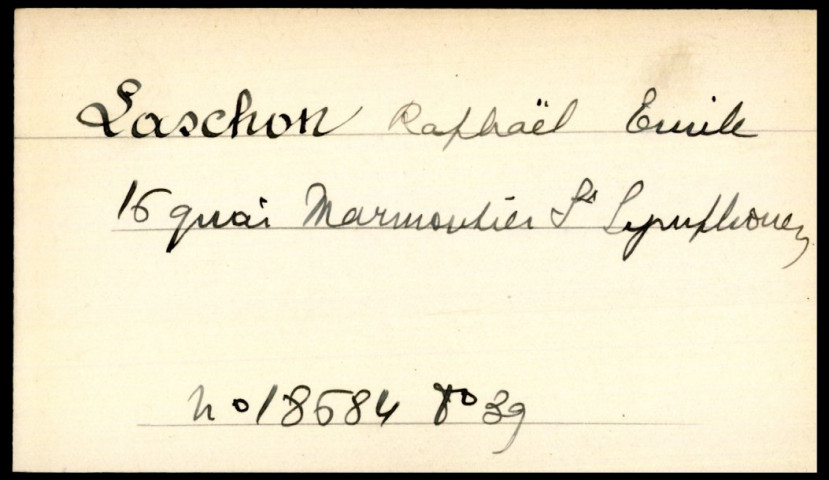 Laschon Raphaël Emile
15 quai Marmoutier St Symphorien
no 18584 39